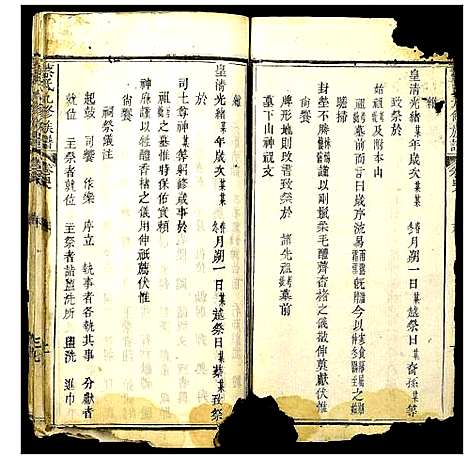 維
皇清光緒某年歲次某某
月朔一日某越祭日
裔孫某等
致祭於
祖
及附本山
墓前而言曰歲序流易
今以
封塋不勝
謹以剛鬣柔毛醴齊香楮之儀敬伸奠獻伏惟
尚饗
牌形地則改書致祭於
諸先祖
墓前
墓下山神祇文
維
皇清光緒某年歲次某某
月朔一日某越祭日某某致祭
於
司土尊神某等躬修歲事於
祖
之墓惟時保佑實賴
神庥謹以牲醴香楮之儀用伸祇薦伏惟
尚饗
祠祭儀注
起鼓 司饗 作樂 序立 執事者各執其事 分獻者
就位 主祭者就位 主祭者詣盥洗所 盥洗 進巾
氏九修族譜